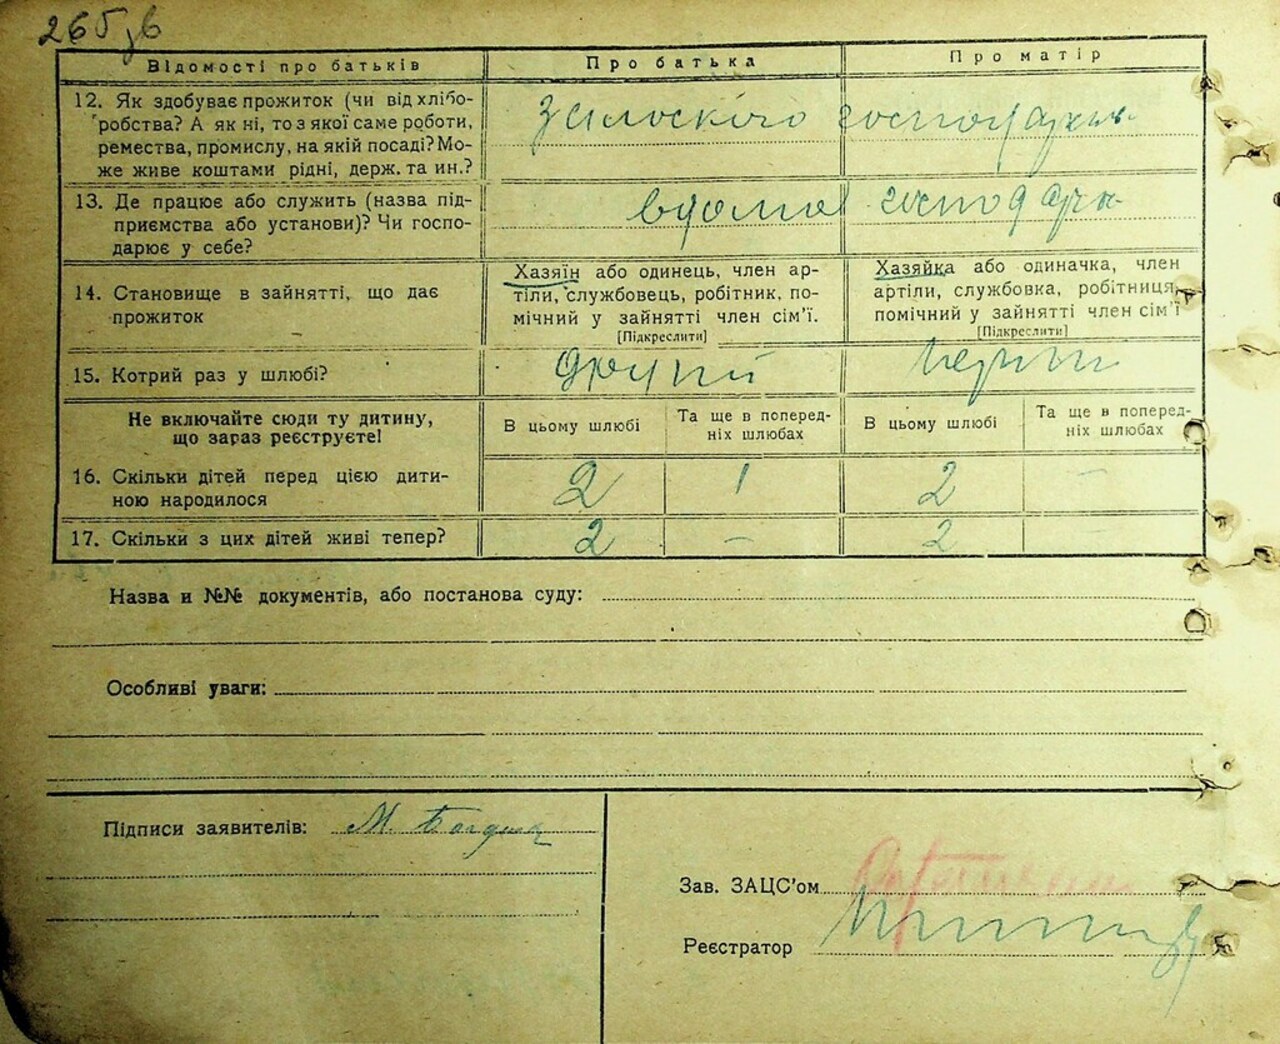 265зв
Відомості про батьків
Про батька
Про матір
12. Як здобуває прожиток (чи від хлібо-
робства? А як ні, то з якої саме роботи,
ремества, промислу, на якій посаді? Мо-
же живе коштами рідні, держ. та ин.?
з сільского господарки
13. Де працює або служить (назва під-
приємства або установи)? Чи госпо-
дарює у себе?
вдома господарки
14. Становище в зайнятті, що дає
прожиток
Хазяїн або одинець, член ар-
тіли, службовець, робітник, по-
мічний у зайнятті член сім'ї.
[Підкреслити]
Хазяйка або одиначка, член
артіли, службовка, робітниця,
помічний у зайнятті член сім'ї
[Підкреслити]
15. Котрий раз у шлюбі?
другий
перший
Не включайте сюди ту дитину,
що зараз реєструєте!
В цьому шлюбі
Та ще в поперед-
ніх шлюбах
В цьому шлюбі
Та ще в поперед-
ніх шлюбах
16. Скільки дітей перед цією дити-
ною народилося
2
1
2
-
17. Скільки з цих дітей живі тепер?
2
-
2
-
Назва и №№ документів, або постанова суду:
Особливі уваги:
Підписи заявителів: М.
Зав. ЗАЦС'ом
Реєстратор